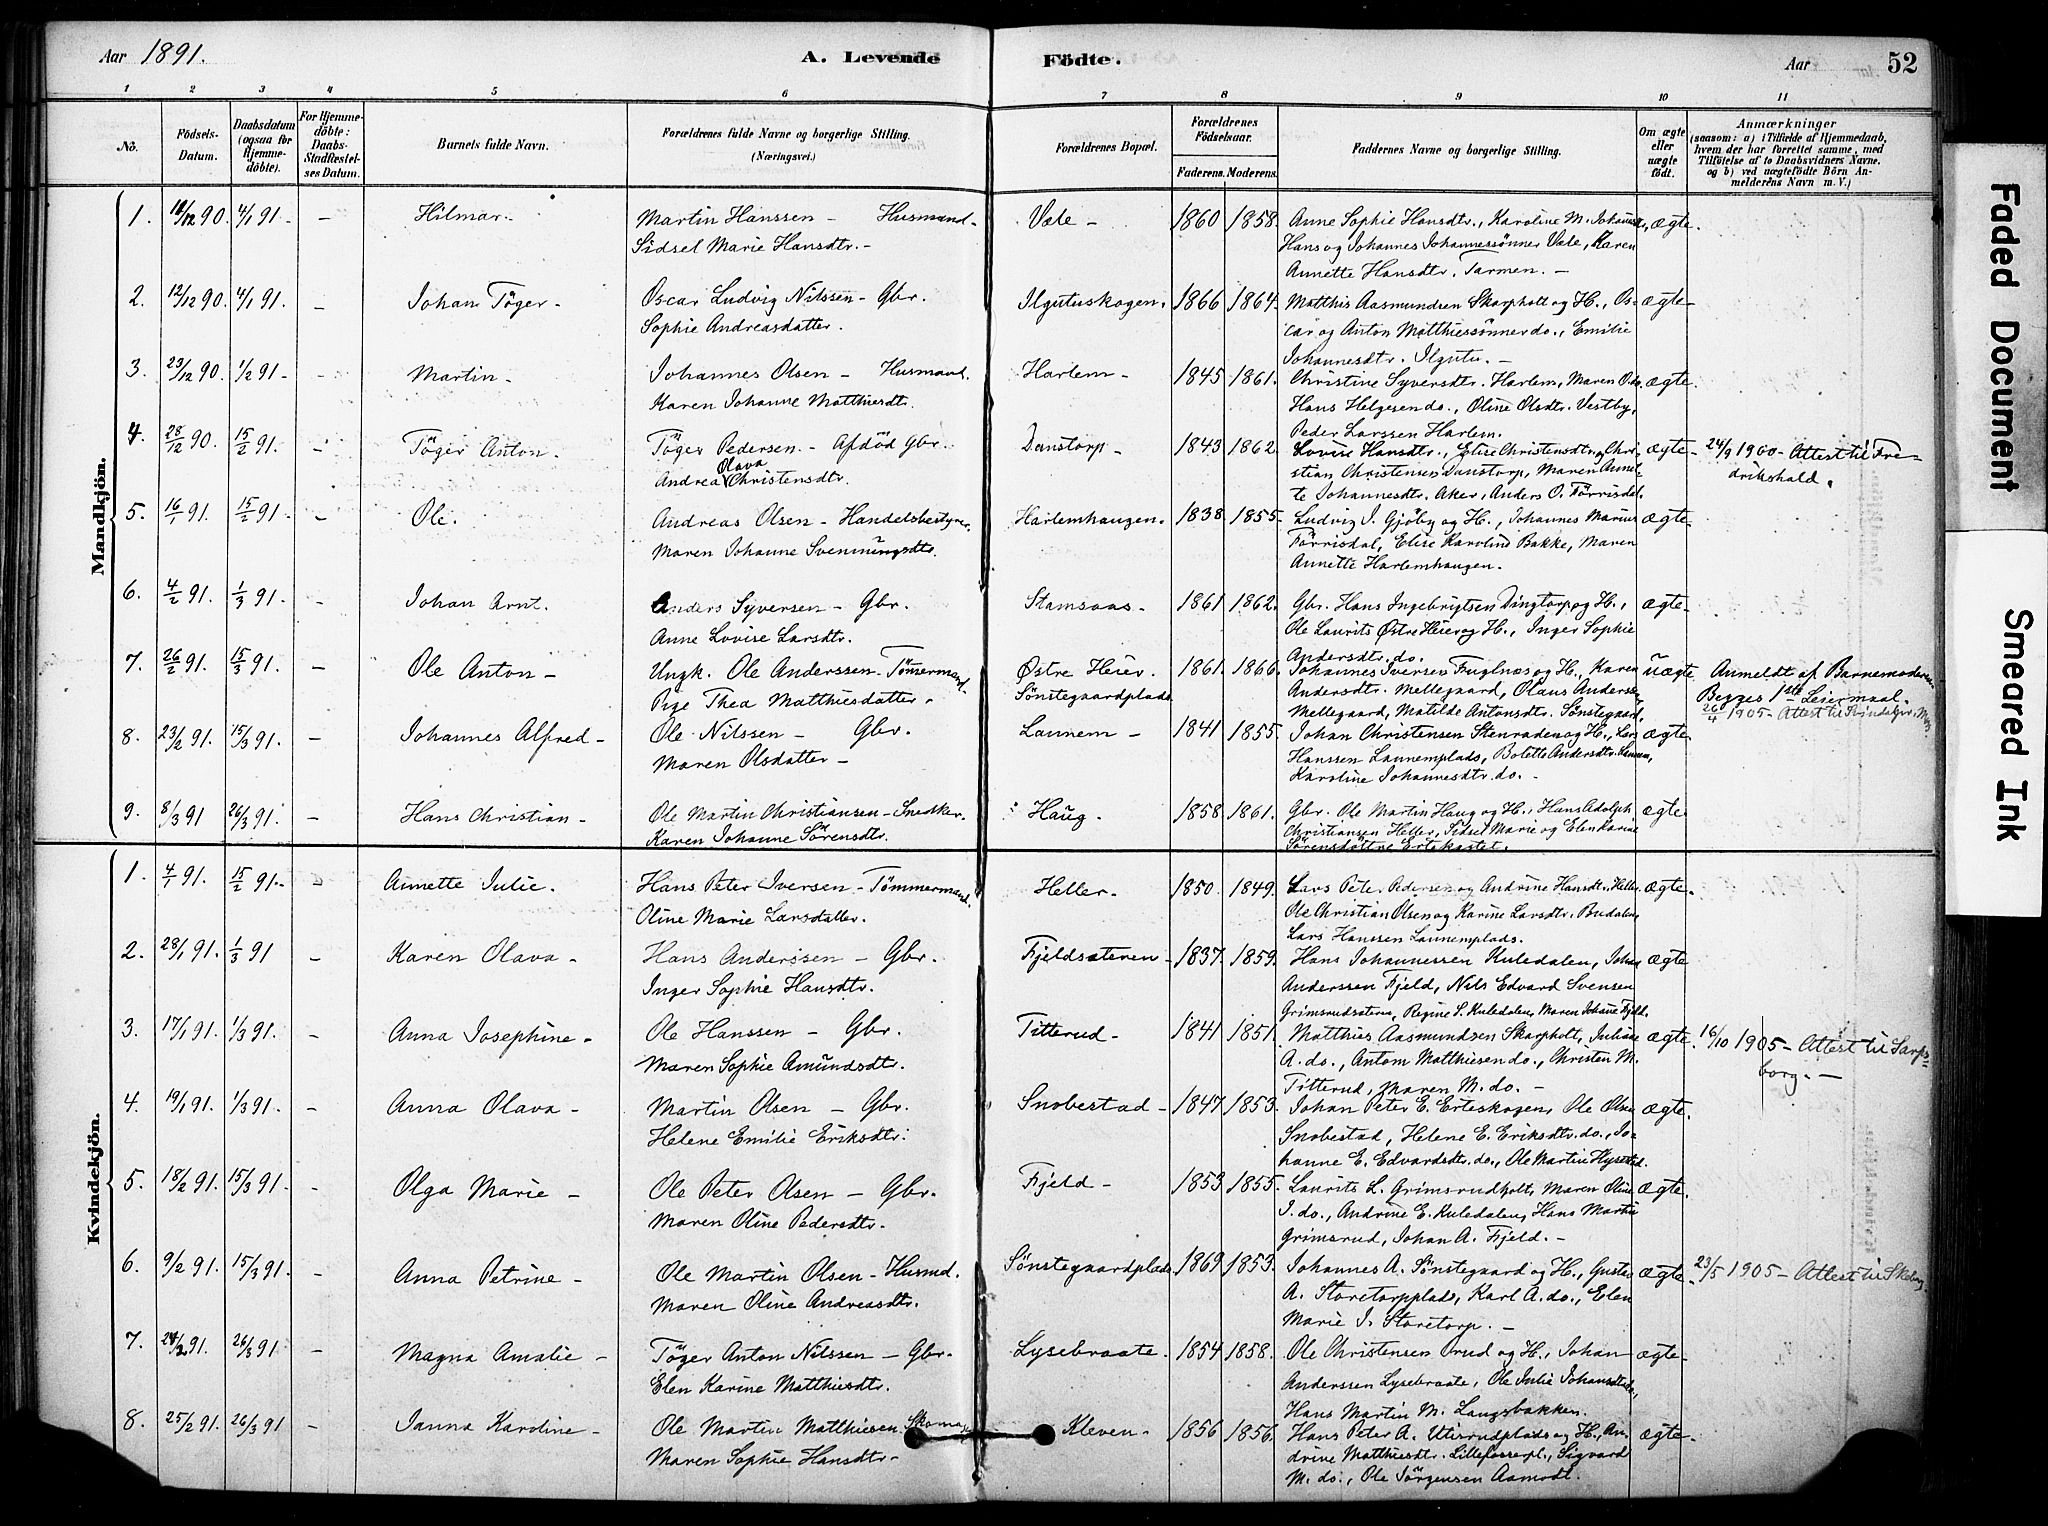 Aar 1891. A. Levende Födte. Aar 52
1 2 3 4 5 6 7 8 9 10 11
No. Födsels-Datum. Daabsdatum (ogsaa for Hjemmedöbte). For Hjemmedöbte: Daabs-Stadfæstelses Datum. Barnets fulde Navn. Forældrenes fulde Navne og borgerlige Stilling. (Næringsvei.) Forældrenes Bopæl. Forældrenes Födselsaar. Faderens. Moderens. Faddernes Navne og borgerlige Stilling. Om ægte eller uægte födt. Anmærkninger (saasom: a) i Tilfælde af Hjemmedaab, hvem der har forrettet samme, med Tilföielse af to Daabsvidners Navne. og b) ved uægtefödte Börn Anmelderens Navn m. V.)
Mandkjön.
1. 4/1 91. - Hilmar. Martin Hanssen - Husmand. Væle - 1860 1858. Anne Sophie Hansdtr., Karoline M. ægte.
Sidsel Marie Hansdtr. - Hans og Johannes Johannessönner Væle, Karen
Annette Hansdtr. Tarmen. -
2. 12/12 90. 4/1 91. - Johan Töger - Oscar Ludvig Nilssen - Gbr. Ilgutuskogen. 1866 1864. Matthis Aasmundsen Skarpholt og H., Os- ægte-
Sophie Andreasdatter. car og Anton Matthiessönner do., Emilie
Johannesdtr. Ilgutu. -
3. 23/12 90. 1/2 91 - - Martin - Johannes Olsen - Husmand. Harlem - 1845 1861. Christine Syversdtr. Harlem, Maren O. do. ægte.
Karen Johanne Matthiesdtr. Hans Helgesen do., Oline Olsdtr. Vestby,
Peder Larssen Harlem.
4. 28/12 90. 15/2 91. - Töger Anton. Töger Pedersen - Afdöd Gbr. Danstorp - 1843 1862. Lovise Hansdtr., Elise Christensdtr., Chri- ægte- 24/9 1900 - Attest til Fre-
Andrea Olava Christensdtr. stian Christensen Danstorp, Maren Annet- drikshald.
te Johannesdtr. Aker, Anders O. Förrisdal.
5. 16/1 91. 15/2 91. - Ole. Andreas Olsen - Handelsbestyrer Harlemhaugen. 1838 1855. Ludvig I. Gjöby og H., Johannes Marius ægte-
Maren Johanne Svenningsdtr. Förrisdal, Elise Karoline Bakke, Maren
Annette Harlemhaugen.
6. 4/2 91. 1/3 91. - Johan Arnt. Anders Syversen - Gbr. Stamsaas - 1861 1862. Gbr. Hans Ingebrigtsen Dingtorp og H., ægte-
Anne Lovise Larsdtr. Ole Laurits Østre Heier og H., Inger Sophie
Andersdtr. do.
7. 26/2 91. 15/3 91. - Ole Anton - Ungk. Ole Anderssen - Tömmermand. Østre Heier. 1861. 1866. Johannes Iversen Fuglnæs og H., Karen uægte Anmeldt af Barnemoderen
Pige Thea Matthiesdatter - Sönstegaardplads. Andersdtr. Mellegaard, Olaus Andersen Begges 1ste Leiermaal.
Mellegaard, Matilde Antonsdtr. Sönstegaard. 26/4 1905 - Attest til
8. 23/2 91. 15/3 91. - Johannes Alfred - Ole Nilssen - Gbr. Launem - 1841 1855. Johan Christensen Stenraden og H., Lars ægte-
Maren Olsdatter - Hanssen Launemplads, Bolette Andersdtr. Launem,
Karoline Johannesdtr. do. -
9. 8/3 91 26/3 91. - Hans Christian - Ole Martin Christiansen - Snedker. Haug. 1858 1861. Gbr. Ole Martin Haug og H., Hans Adolph ægte.
Karen Johanne Sörensdtr. Christiansen Heller, Sidsel Marie og Elen Karine
Sörensdöttre Ertekastet.
Kvindekjön.
1. 4/1 91. 15/2 91. - Annette Julie. Hans Peter Iversen - Tömmermand. Heller. 1850. 1849. Lars Peter Pedersen og Andrine Hansdtr. Heller ægte.
Oline Marie Larsdatter. Ole Christian Olsen og Karine Larsdtr. Budalen,
Lars Hanssen Launemplads.
2. 28/1 91. 1/3 91 - Karen Olava - Hans Anderssen - Gbr. Fjeldsæteren - 1837 1859. Hans Johannessen Kuledalen, Johan ægte
Inger Sophie Hansdtr. Anderssen Fjeld, Nils Edvard Svensen
Grimsrudsætern, Regine S. Kuledalen, Maren Johane Fjeld.
3. 17/1 91. 1/3 91. - Anna Josephine - Ole Hanssen - Gbr. Titterud - 1841 1851. Matthias Aasmundsen Skarpholt, Juliane ægte. 16/10 1905 - Attest til Sarps-
Maren Sophie Amundsdtr. A. do., Anton Matthiesen do., Christen M. borg. -
Titterud, Maren M. do. -
4. 19/1 91. 1/3 91. - Anna Olava - Martin Olsen - Gbr. Snobestad - 1847 1853. Johan Peter E. Erteskogen, Ole Olsen ægte.
Helene Emilie Eriksdtr. Snobestad, Helene E. Eriksdtr. do., Jo-
hanne E. Edvardsdtr. do., Ole Martin Hysestad.
5. 18/2 91. 15/3 91. - Olga Marie - Ole Peter Olsen - Gbr. Fjeld - 1853 1855. Laurits L. Grimsrudholt, Maren Oline ægte.
Maren Oline Pedersdtr. I. do., Andrine E. Kuledalen, Hans Martin
Grimsrud, Johan A. Fjeld. -
6. 9/2 91. 15/3 91. - Anna Petrine - Ole Martin Olsen - Husmd. Sönstegaardplads 1869 1853. Johannes A. Sönstegaard og H., Gustav ægte. 23/5 1905 - Attest til
Maren Oline Andreasdtr. A. Storetorpplads, Karl A. do., Elen
Marie I. Storetorp. -
7. 24/2 91. 26/3 91. - Magna Amalie - Töger Anton Nilssen - Gbr. Lysebraate. 1854 1858. Ole Christensen Orud og H., Johan ægte-
Elen Karine Matthiesdtr. Anderssen Lysebraate, Ole Julie Johansdtr. do.,
Hans Martin M. Langsbakken.
8. 25/2 91. 26/3 91 - Janna Karoline - Ole Martin Matthiesen Kleven - 1856 1856. Hans Peter A. Utisrudplads og H., An- ægte-
Maren Sophie Hansdtr. - drine Matthiesdtr. Sigvard
M. do., Ole Jörgensen Aamodt.
Faded Document
Smeared Ink